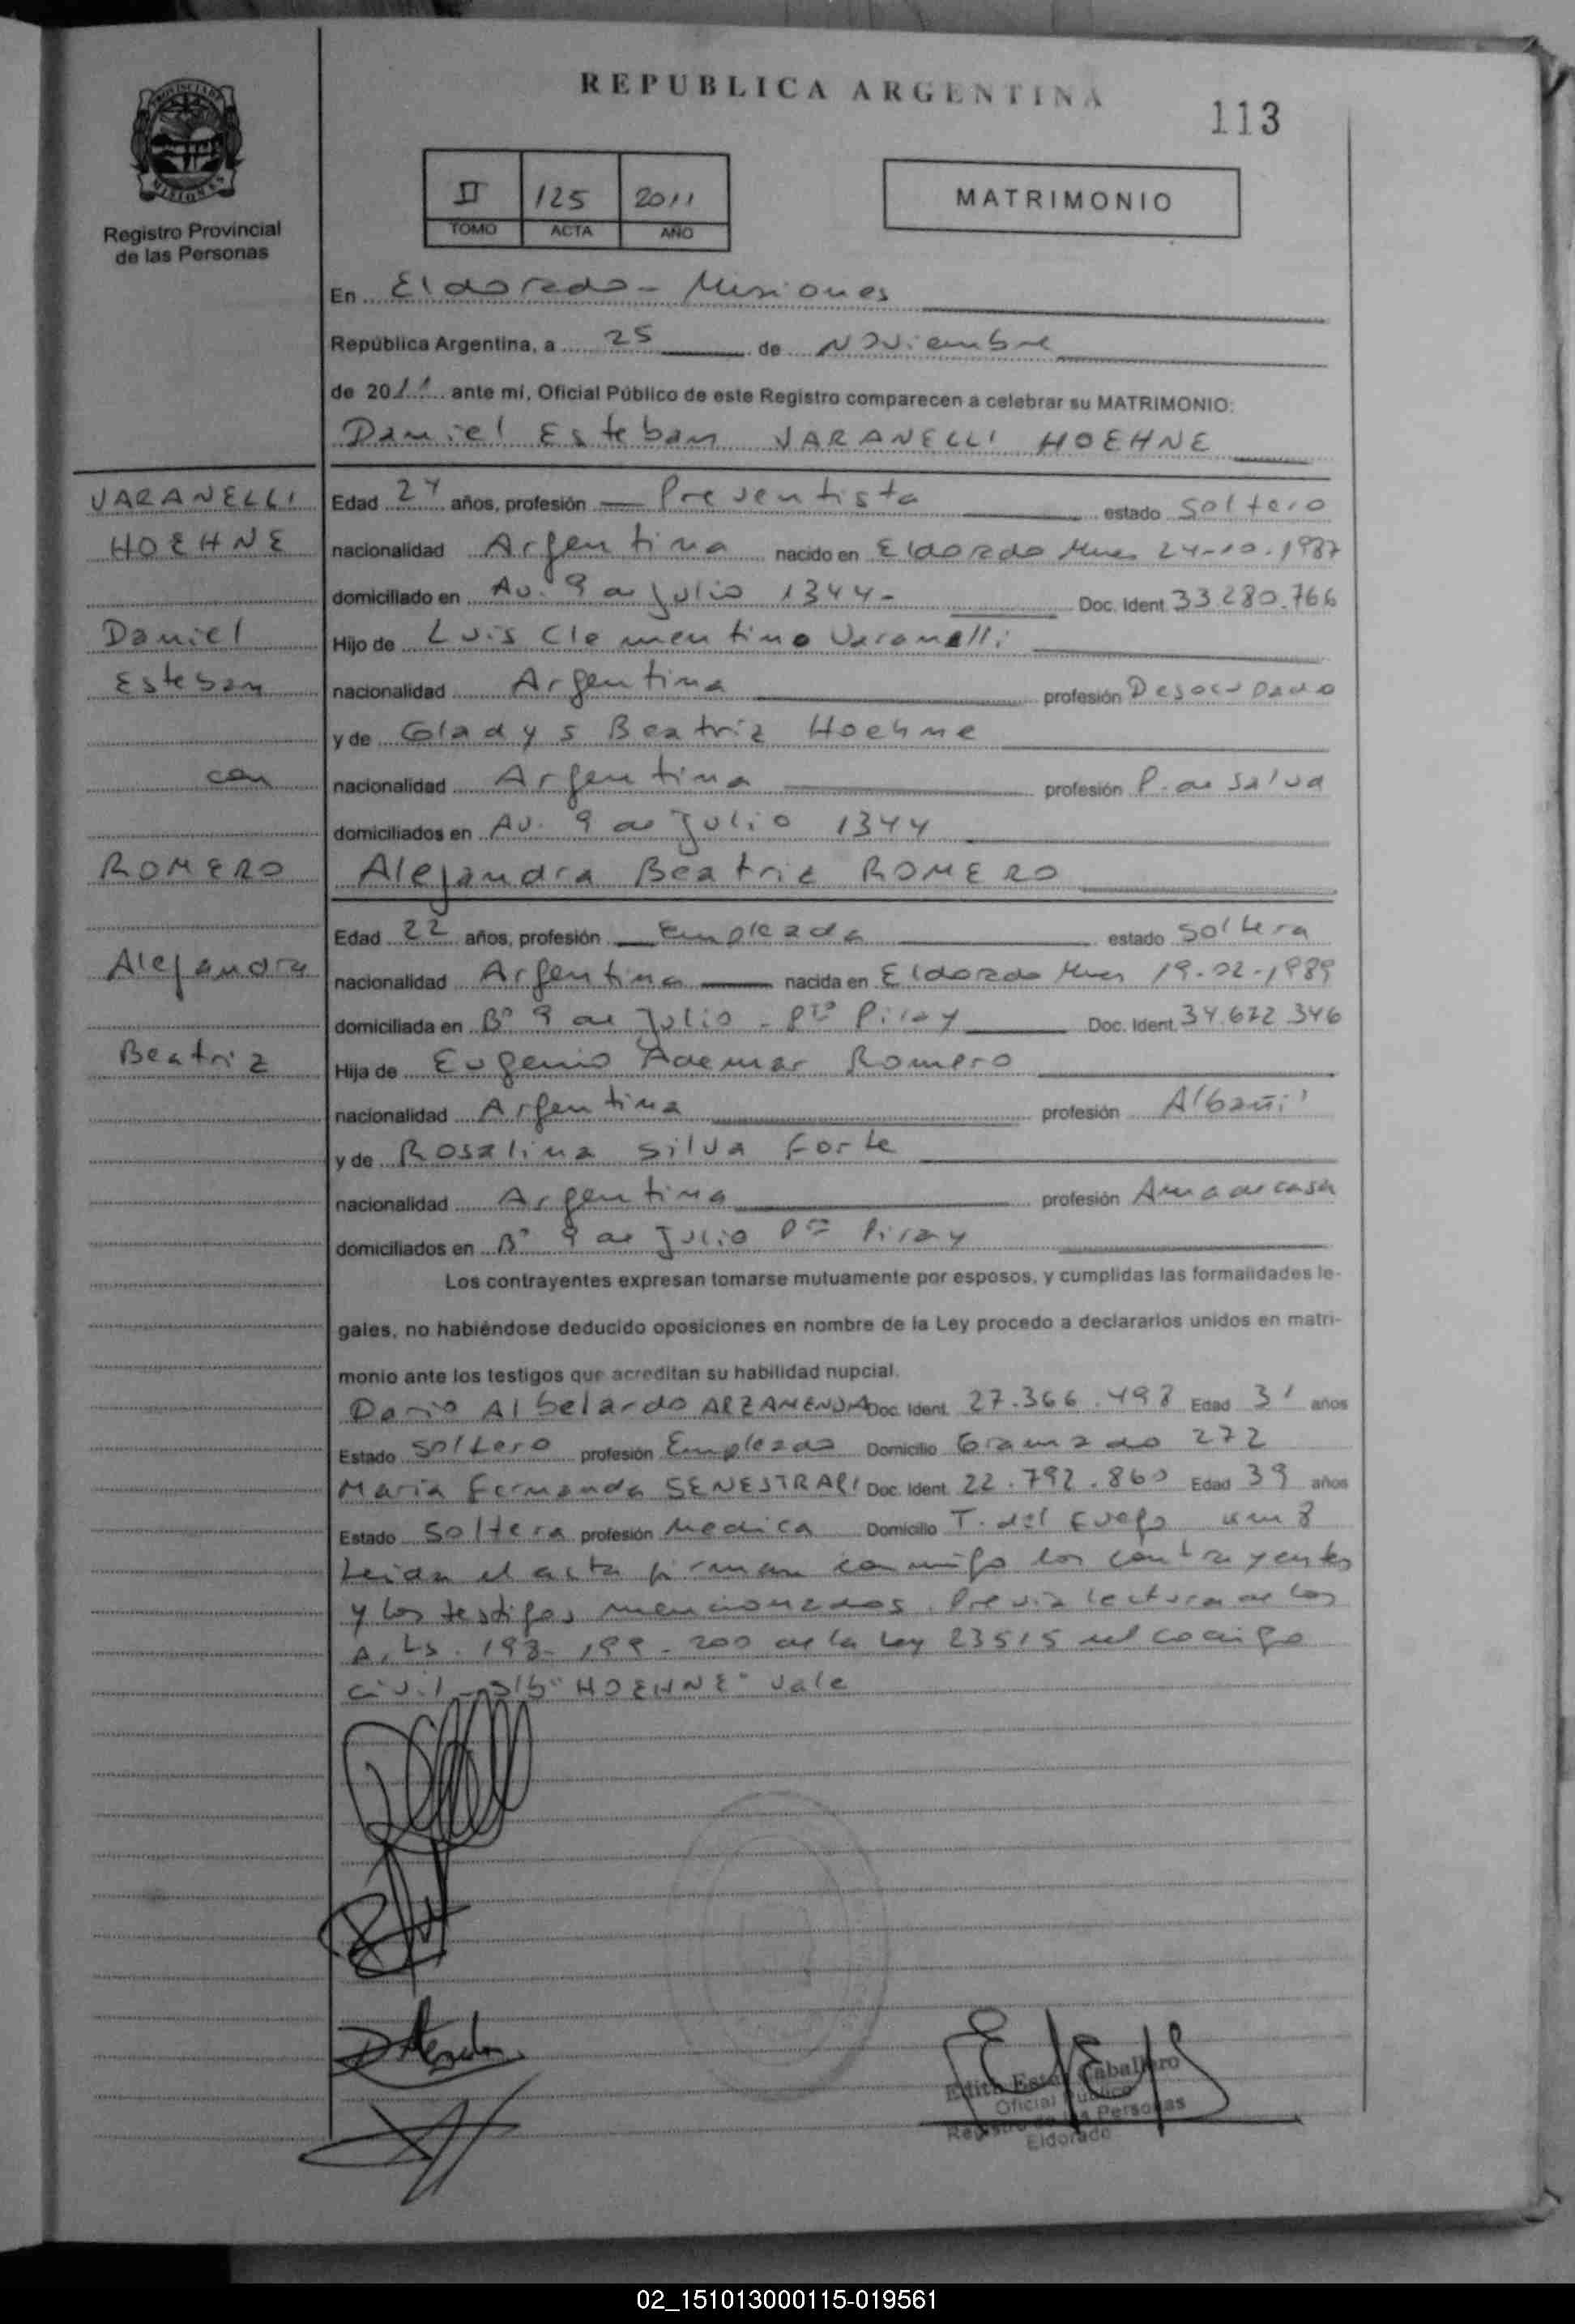 REPUBLICA ARGENTINA
113
PROVINCIA DE MISIONES
Registro Provincial
de las Personas
II 125 2011
TOMO ACTA AÑO
MATRIMONIO
En Eldorado - Misiones
República Argentina, a 25 de Noviembre
de 2011 ante mí, Oficial Público de este Registro comparecen a celebrar su MATRIMONIO:
Daniel Esteban VARANELLI HOEHNE
VARANELLI
HOEHNE
Daniel
Esteban
con
ROMERO
Alejandra
Beatriz
Edad 24 años, profesión Preventista estado Soltero
nacionalidad Argentina nacido en Eldorado Mnes 24-10-1987
domiciliado en Av. 9 de Julio 1344- Doc. Ident. 33.280.766
Hijo de Luis Clementino Varanelli
nacionalidad Argentina profesión Desocupado
y de Gladys Beatriz Hoehne
nacionalidad Argentina profesión P. de Salud
domiciliados en Av. 9 de Julio 1344
Alejandra Beatriz ROMERO
Edad 22 años, profesión Empleada estado Soltera
nacionalidad Argentina nacida en Eldorado Mnes 19-02-1989
domiciliada en B° 9 de Julio - Pto Piray Doc. Ident. 34.622.346
Hija de Eugenio Ademar Romero
nacionalidad Argentina profesión Albañil
y de Rosalina Silva Forte
nacionalidad Argentina profesión Ama de casa
domiciliados en B° 9 de Julio Pto Piray
Los contrayentes expresan tomarse mutuamente por esposos, y cumplidas las formalidades le-
gales, no habiéndose deducido oposiciones en nombre de la Ley procedo a declararlos unidos en matri-
monio ante los testigos que acreditan su habilidad nupcial.
Dario Albelardo ARZAMENDIA Doc. Ident. 27.366.498 Edad 31 años
Estado Soltero profesión Empleado Domicilio Gramado 272
Maria Fernanda SENESTRARI Doc. Ident. 22.792.860 Edad 39 años
Estado Soltera profesión Medica Domicilio T. del Fuego km 8
Leida el acta firman conmigo los contrayentes
y los testigos mencionados. Previa lectura de los
Arts. 198- 199- 200 de la Ley 23515 del codigo
civil - S/b "HOEHNE" Vale
Edith Ester Caballero
Oficial Público
Registro de las Personas
Eldorado
02_151013000115-019561